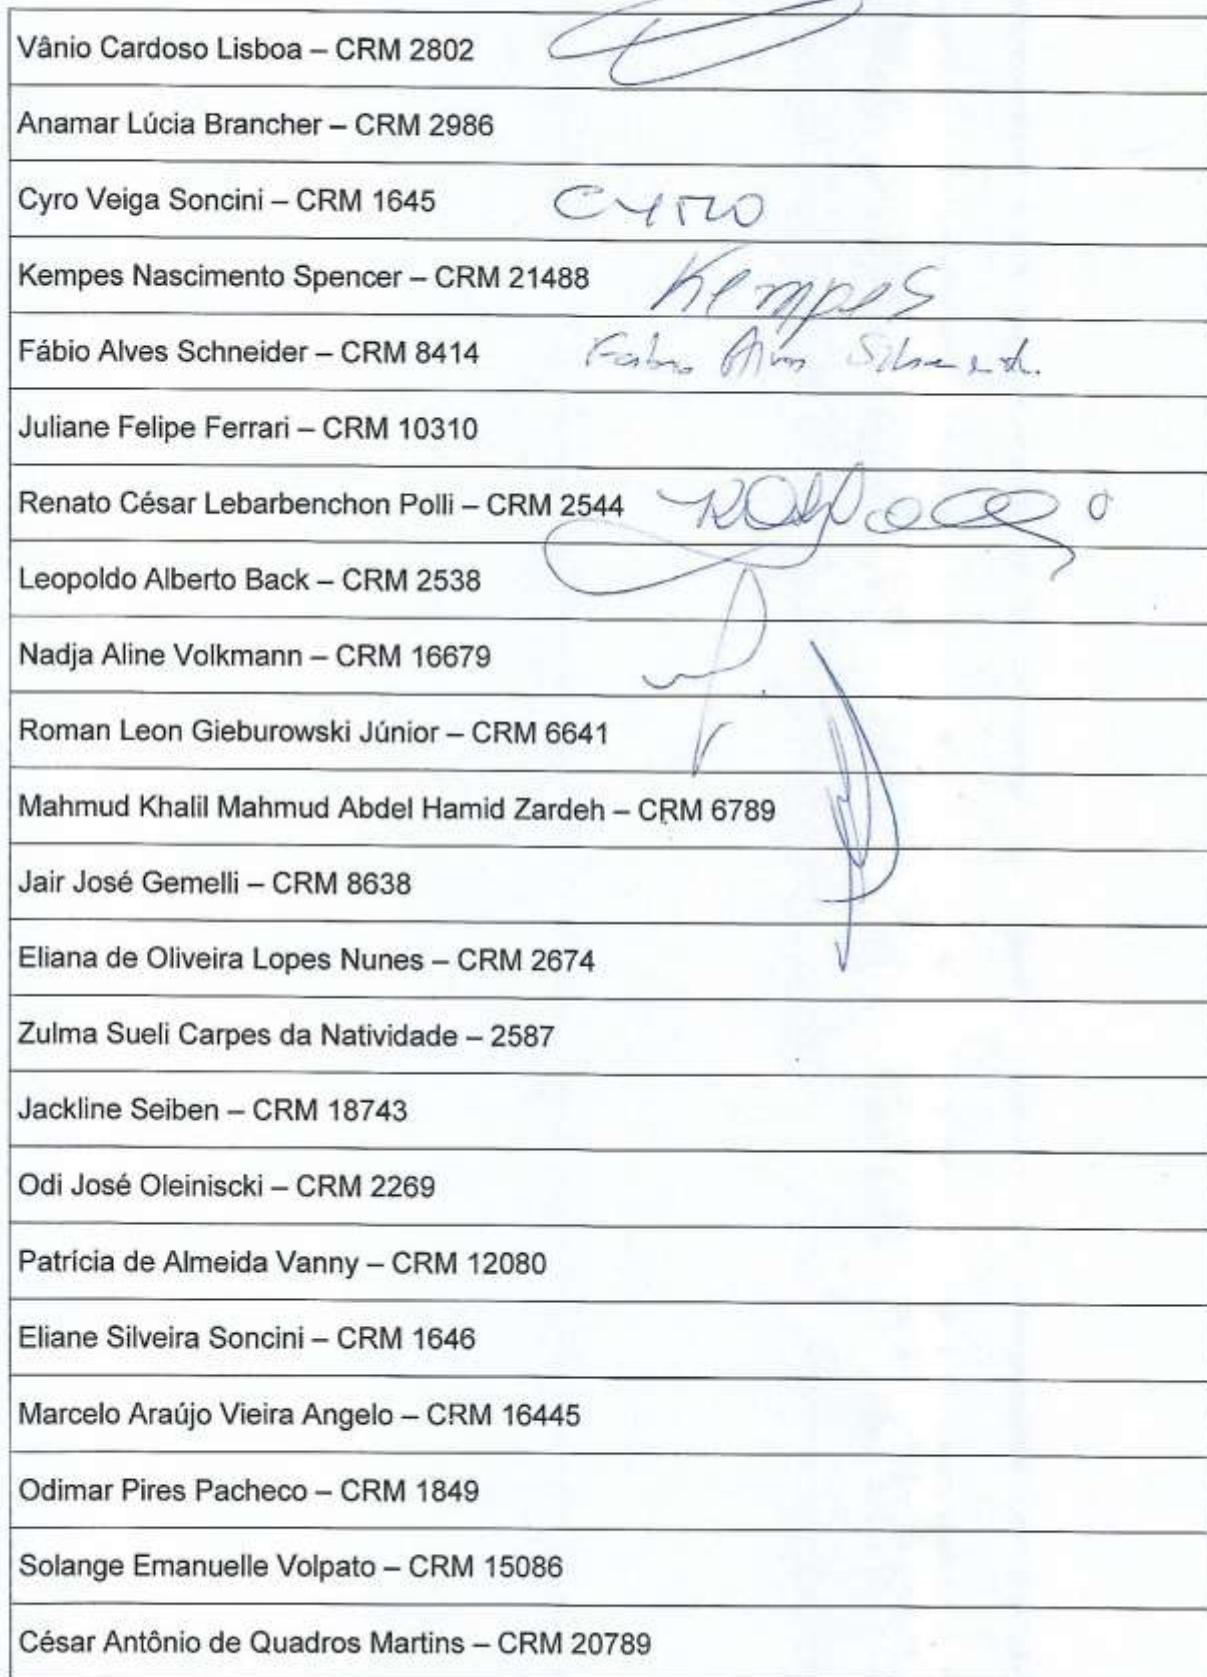 Vânio Cardoso Lisboa – CRM 2802
Anamar Lúcia Brancher – CRM 2986
Cyro Veiga Soncini – CRM 1645 Cyro
Kempes Nascimento Spencer – CRM 21488 Kempes
Fábio Alves Schneider – CRM 8414 Fabio Alves
Juliane Felipe Ferrari – CRM 10310
Renato César Lebarbenchon Polli – CRM 2544
Leopoldo Alberto Back – CRM 2538
Nadja Aline Volkmann – CRM 16679
Roman Leon Gieburowski Júnior – CRM 6641
Mahmud Khalil Mahmud Abdel Hamid Zardeh – CRM 6789
Jair José Gemelli – CRM 8638
Eliana de Oliveira Lopes Nunes – CRM 2674
Zulma Sueli Carpes da Natividade – 2587
Jackline Seiben – CRM 18743
Odi José Oleiniscki – CRM 2269
Patrícia de Almeida Vanny – CRM 12080
Eliane Silveira Soncini – CRM 1646
Marcelo Araújo Vieira Angelo – CRM 16445
Odimar Pires Pacheco – CRM 1849
Solange Emanuelle Volpato – CRM 15086
César Antônio de Quadros Martins – CRM 20789